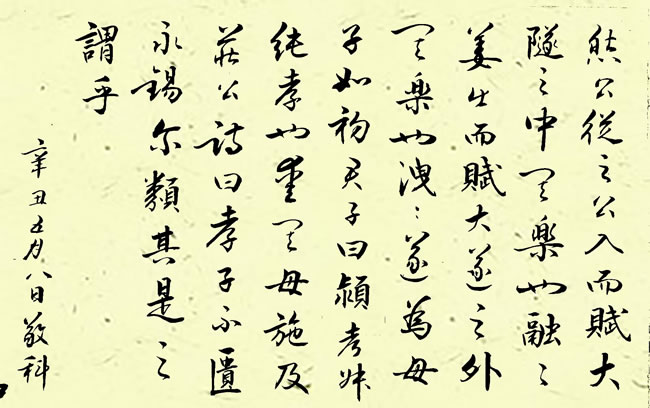 然公從之公入而賦大
隧之中其楽也融〻
姜出而賦大遂之外
其楽也洩〻遂為母
子如初君子曰潁考叔
純孝也愛其母施及
莊公詩曰孝子不匱
永錫尔類其是之
謂乎
辛丑五月八日敬科